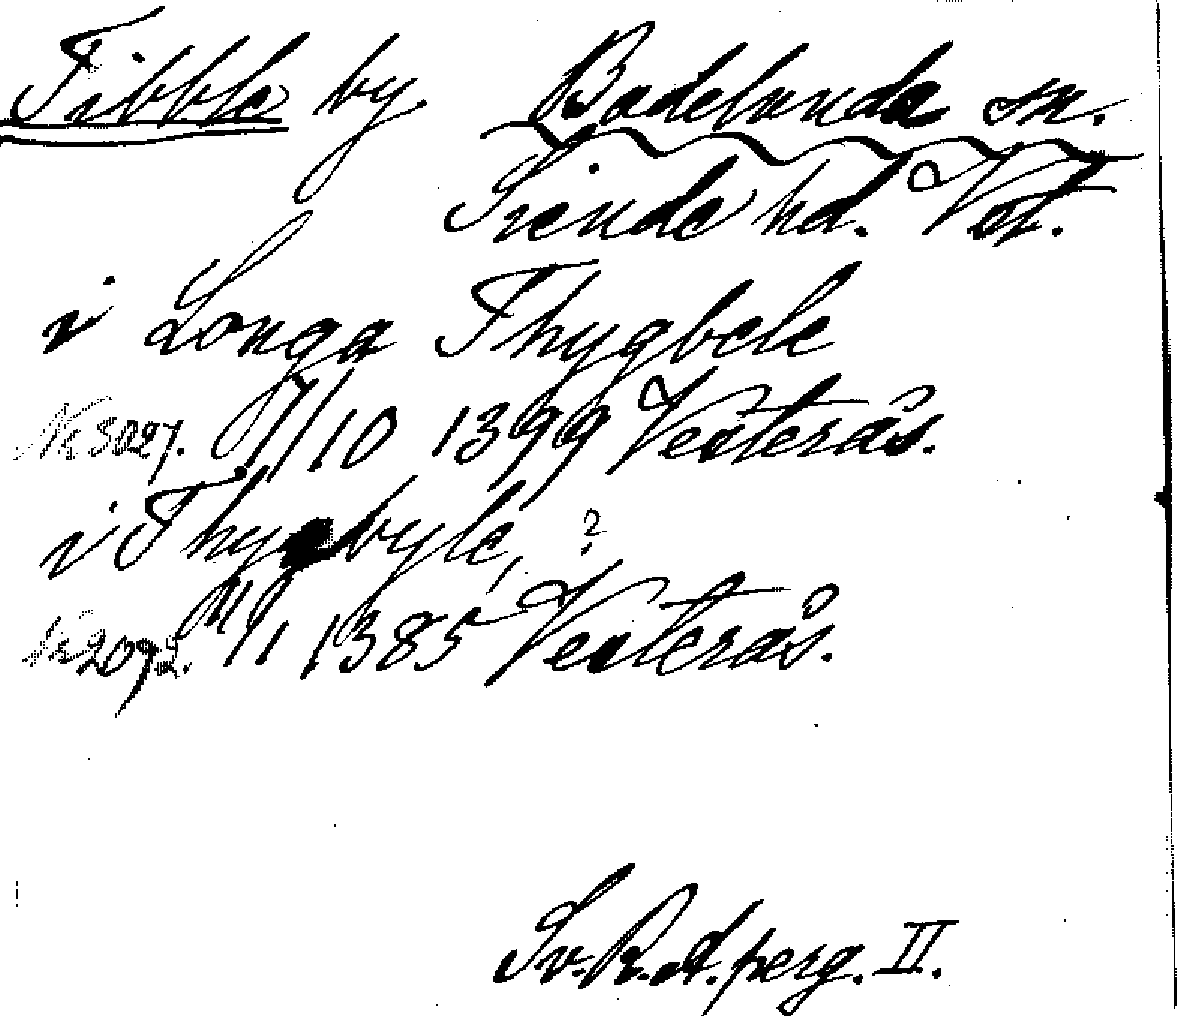 Tibble by Badelunda sn.
Siende hd. Vstm.
i Longa Thygbele
Nr 3027. 7/10 1399 Vesterås.
i Thygbyle, ?
Nr 2092. 11/1 1385 Vesterås.
Sv. R. A. perg. II.